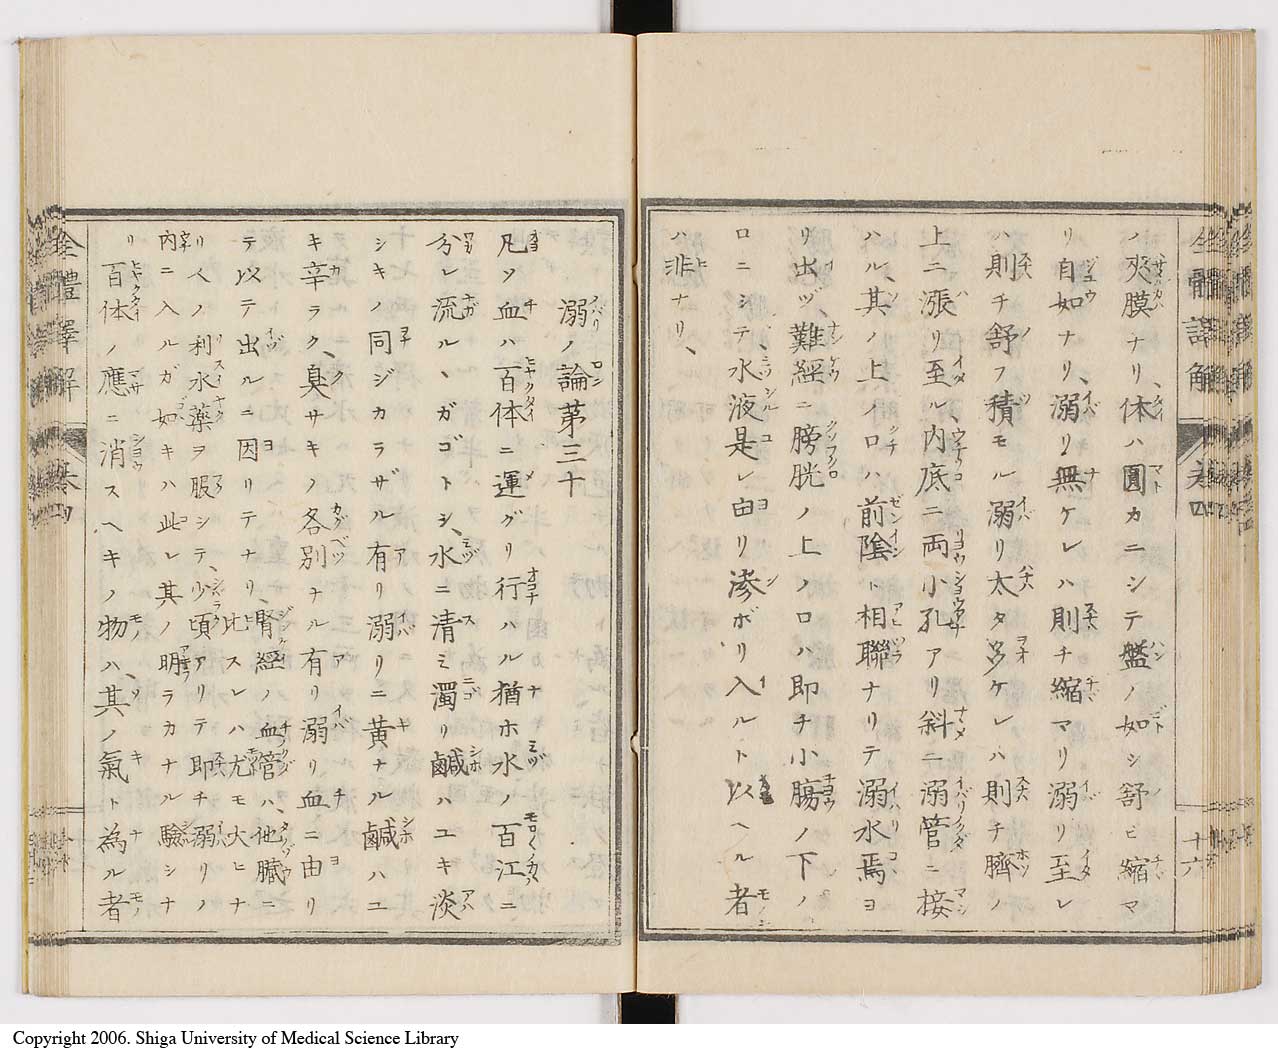 ノ夾膜ナリ、体ハ圓カニシテ盤ノ如シ舒ビ縮マ
リ自如ナリ、溺リ無ケレハ則チ縮マリ溺リ至レ
ハ則チ舒フ積モル溺リ太タ多ケレハ則チ臍ノ
上ニ漲リ至ル、内底ニ両小孔アリ斜ニ溺管ニ接
ハル、其ノ上ノ口ハ前陰ト相聯ナリテ溺水焉ヨ
リ出ヅ、難経ニ膀胱ノ上ノ口ハ即チ小腸ノ下ノ
口ニシテ水液是レ由リ滲ボリ入ルト以ヘル者
ハ非ナリ、
全體譯解 巻四
十六
溺ノ論第三十
凡ソ血ハ百体ニ運グリ行ハル猶ホ水ノ百江ニ
分レ流ル、ガゴトシ、水ニ清ミ濁リ鹹ハユキ淡
シキノ同ジカラザル有リ溺リニ黄ナル鹹ハユ
キ辛ラク、臭サキノ各別ナル有リ溺リ血ニ由リ
テ以テ出ルニ因リテナリ、腎経ノ血管ハ、他臓ニ
比スレハ尤モ大ヒナ
リ人ノ利水薬ヲ服シテ、少頃アリテ即チ溺リノ
内ニ入ルガ如キハ此レ其ノ明ラカナル驗シナ
リ百体ノ應ニ消スヘキノ物ハ、其ノ氣ト為ル者
全體譯解 巻四
Copyright 2006. Shiga University of Medical Science Library